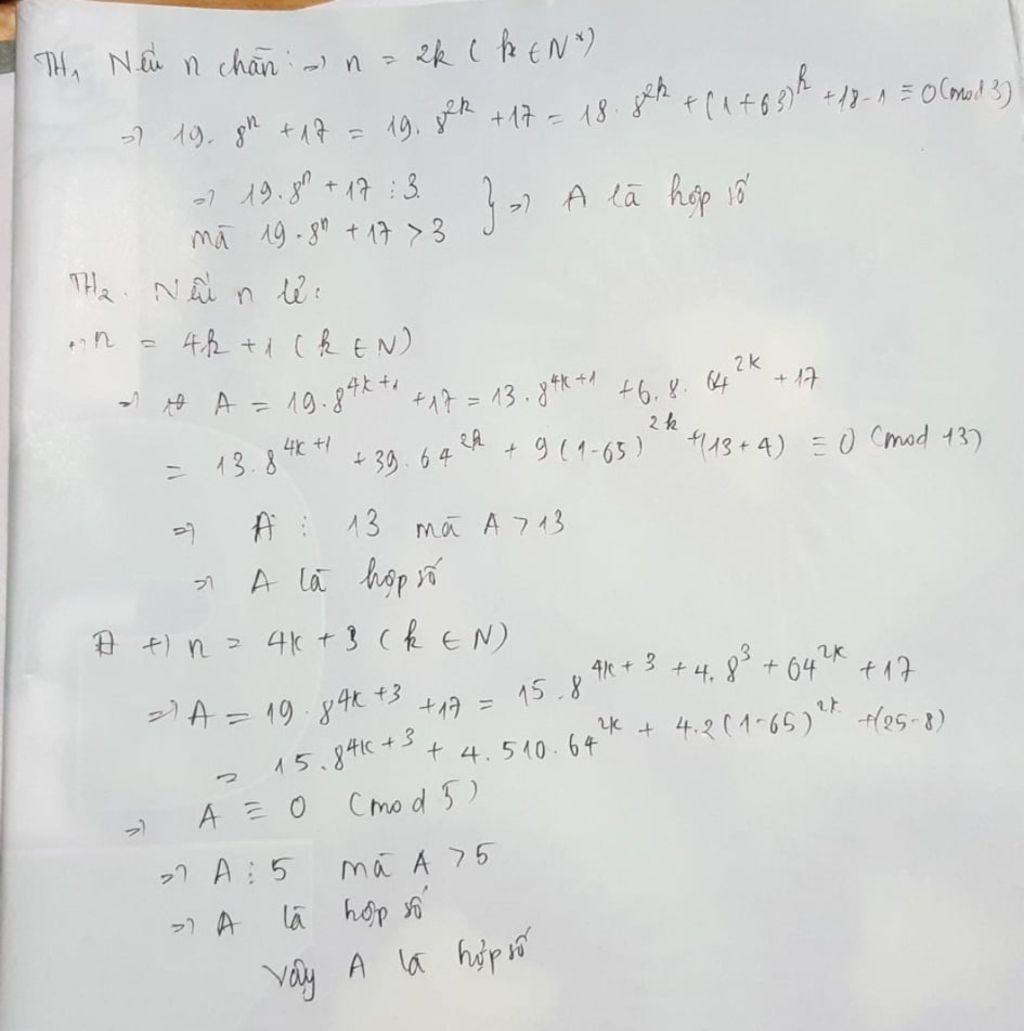 TH₁ Nếu n chẵn: => n = 2k ( k ∈ N*)
=> 19. 8ⁿ + 17 = 19. 8²ᵏ + 17 = 18. 8²ᵏ + (1 + 63)ᵏ + 18 - 1 ≡ 0 (mod 3)
=> 19.8ⁿ + 17 ⋮ 3
mà 19.8ⁿ + 17 > 3 } => A là hợp số
TH₂. Nếu n lẻ:
+) n = 4k + 1 ( k ∈ N)
=> A = 19.8⁴ᵏ⁺¹ + 17 = 13.8⁴ᵏ⁺¹ + 6.8. 64²ᵏ + 17
= 13.8⁴ᵏ⁺¹ + 39.64²ᵏ + 9 (1-65)²ᵏ + (13 + 4) ≡ 0 (mod 13)
=> A ⋮ 13 mà A > 13
=> A là hợp số
+) n = 4k + 3 ( k ∈ N)
=> A = 19.8⁴ᵏ⁺³ + 17 = 15.8⁴ᵏ⁺³ + 4.8³ + 64²ᵏ + 17
= 15.8⁴ᵏ⁺³ + 4.510.64²ᵏ + 4.2 (1-65)²ᵏ + (25-8)
=> A ≡ 0 (mod 5)
=> A ⋮ 5 mà A > 5
=> A là hợp số
Vậy A là hợp số